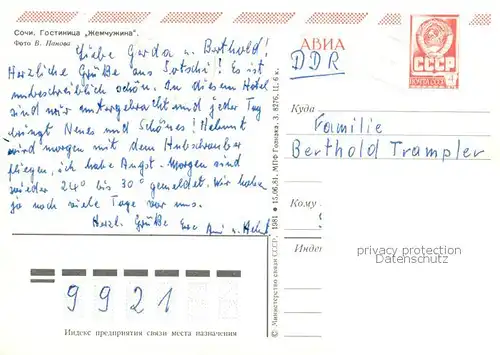 Сочи. Гостиница „Жемчужина".
Фото В. Панова
Liebe Gerda u. Berthold!
Herzliche Grüße aus Sotschi! Es ist
unbeschreiblich schön. In diesem Hotel
sind wir untergebracht und jeder Tag
bringt Neues und Schönes! Helmut
wird morgen mit dem Hubschrauber
fliegen, ich habe Angst. Morgen sind
wieder 24° bis 30° gemeldet. Wir haben
ja noch viele Tage vor uns.
Herzl. Grüße Eve
АВИА
DDR
СССР
Куда
Familie
Berthold Trampler
Кому
Индекс
privacy protection
veryimportantlot.com
© Министерство связи СССР, 1981 ● 15.06.81. МПФ Гознака. З. 8276. Ц. 6 к.
9921
Индекс предприятия связи места назначения